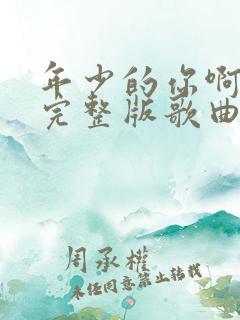 年少的你啊
完整版歌曲
周承權
未经同意禁止转载